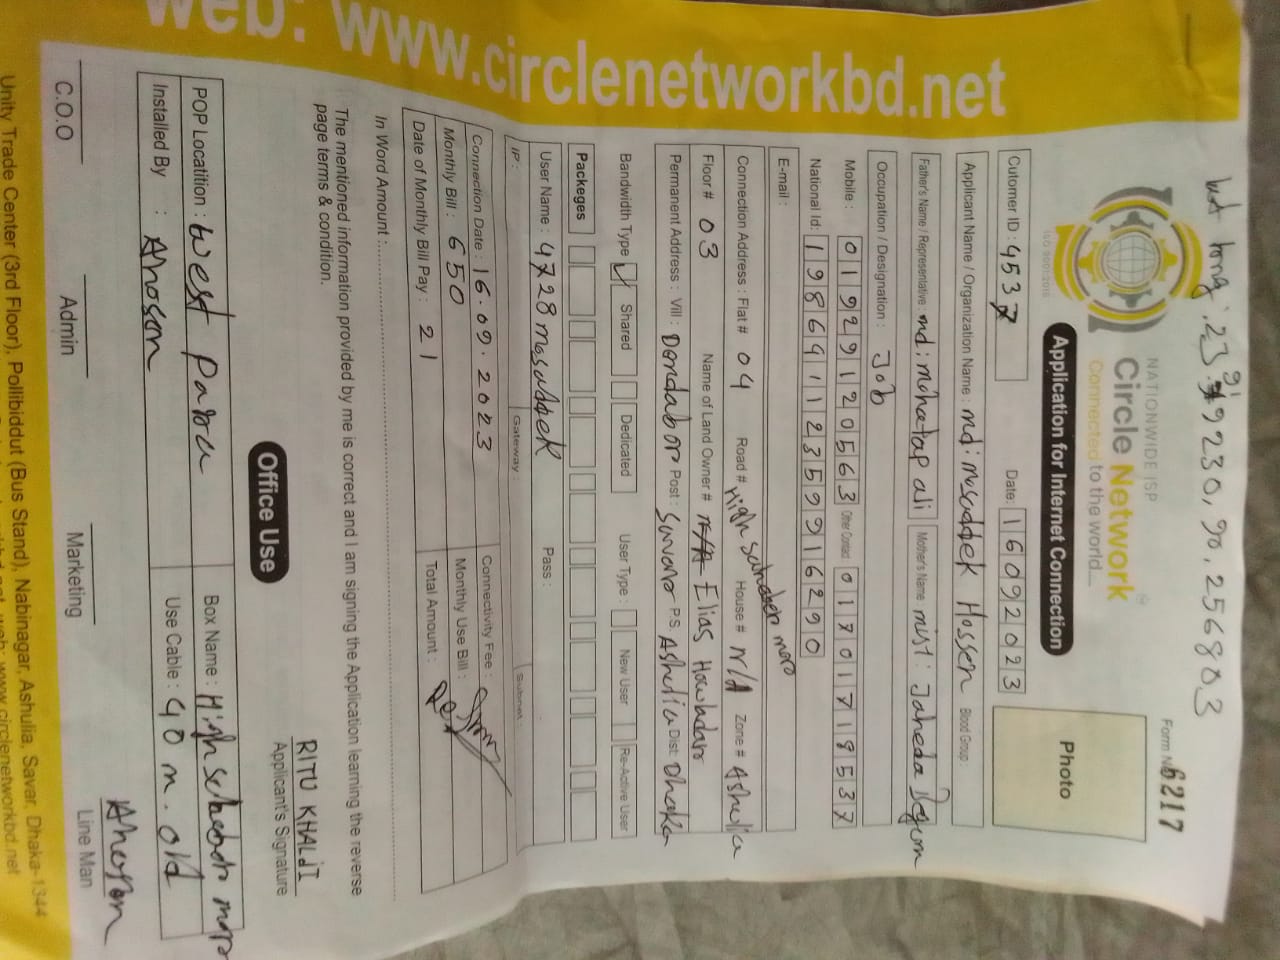 lat long : 23.919230, 90.256803
Form No 6217
NATIONWIDE ISP
Circle Network
Connected to the world...
ISO 9001:2015
Application for Internet Connection
Photo
Cutomer ID : 4537
Date: 16092023
Applicant Name / Organization Name : md: musaddek Hossen Blood Group :
Father's Name / Representative : md: mohatap ali Mother's Name mist: Jaheda Begum
Occupation / Designation : Job
Mobile : 01929120563 Other Contact 01701719537
National Id: 19864112359916290
E-mail :
Connection Address : Flat # 04 Road # High School moro House # N/A Zone # Ashulia
Floor # 03 Name of Land Owner # Elias Howladar
Permanent Address : Vill : Dendabor Post : Savar P.S Ashulia Dist Dhaka
Bandwidth Type Shared Dedicated User Type : New User Re-Active User
Packeges
User Name : 4728masaddek Pass :
IP : Gateway : Subnet :
Connection Date : 16.09.2023 Connectivity Fee :
Monthly Bill : 650 Monthly Use Bill :
Date of Monthly Bill Pay : 21 Total Amount :
In Word Amount :
The mentioned information provided by me is correct and I am signing the Application learning the reverse
page terms & condition.
RITU KHALJI
Applicant's Signature
Office Use
POP Locatition : West Para Box Name : High School moro
Installed By : Ahosan Use Cable : 40 m. old
C.O.O Admin Marketing Line Man
Unity Trade Center (3rd Floor), Pollibiddut (Bus Stand), Nabinagar, Ashulia, Savar, Dhaka-1344
web: www.circlenetworkbd.net
web: www.circlenetworkbd.net